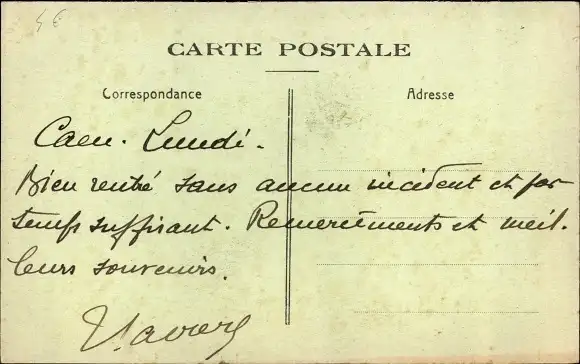 4 €
CARTE POSTALE
Correspondance
Adresse
Caen. Lundi.
Bien rentré sans aucun incident et par
temps suffisant. Remerciements et meil.
leurs souvenirs.